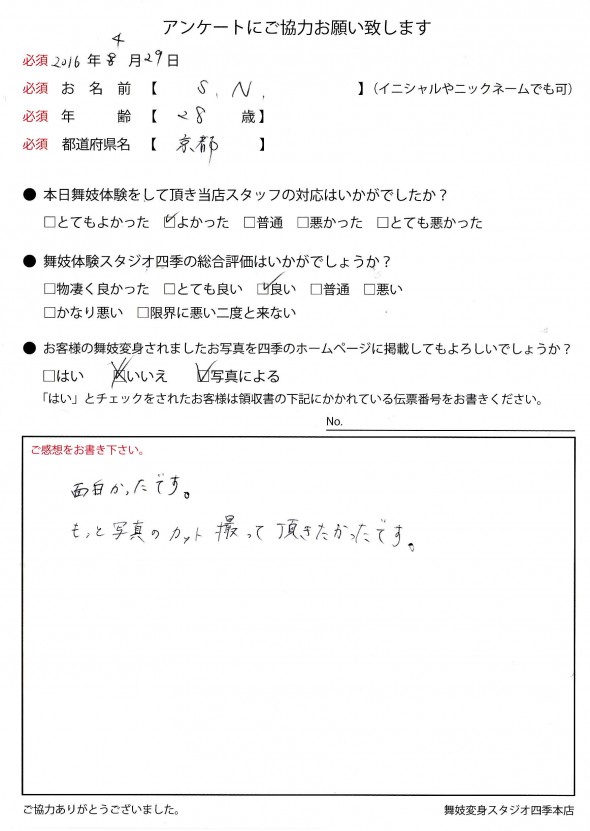 アンケートにご協力お願い致します
必須 2016年4月29日
必須 お名前 【 S.N. 】(イニシャルやニックネームでも可)
必須 年齢 【 28 歳】
必須 都道府県名 【 京都 】
● 本日舞妓体験をして頂き当店スタッフの対応はいかがでしたか?
□とてもよかった ☑よかった □普通 □悪かった □とても悪かった
● 舞妓体験スタジオ四季の総合評価はいかがでしょうか?
□物凄く良かった □とても良い ☑良い □普通 □悪い
□かなり悪い □限界に悪い二度と来ない
● お客様の舞妓変身されましたお写真を四季のホームページに掲載してもよろしいでしょうか?
□はい ☒いいえ ☑写真による
「はい」とチェックをされたお客様は領収書の下記にかかれている伝票番号をお書きください。
No.
ご感想をお書き下さい。
面白かったです。
もっと写真のカット撮って頂きたかったです。
ご協力ありがとうございました。 舞妓変身スタジオ四季本店